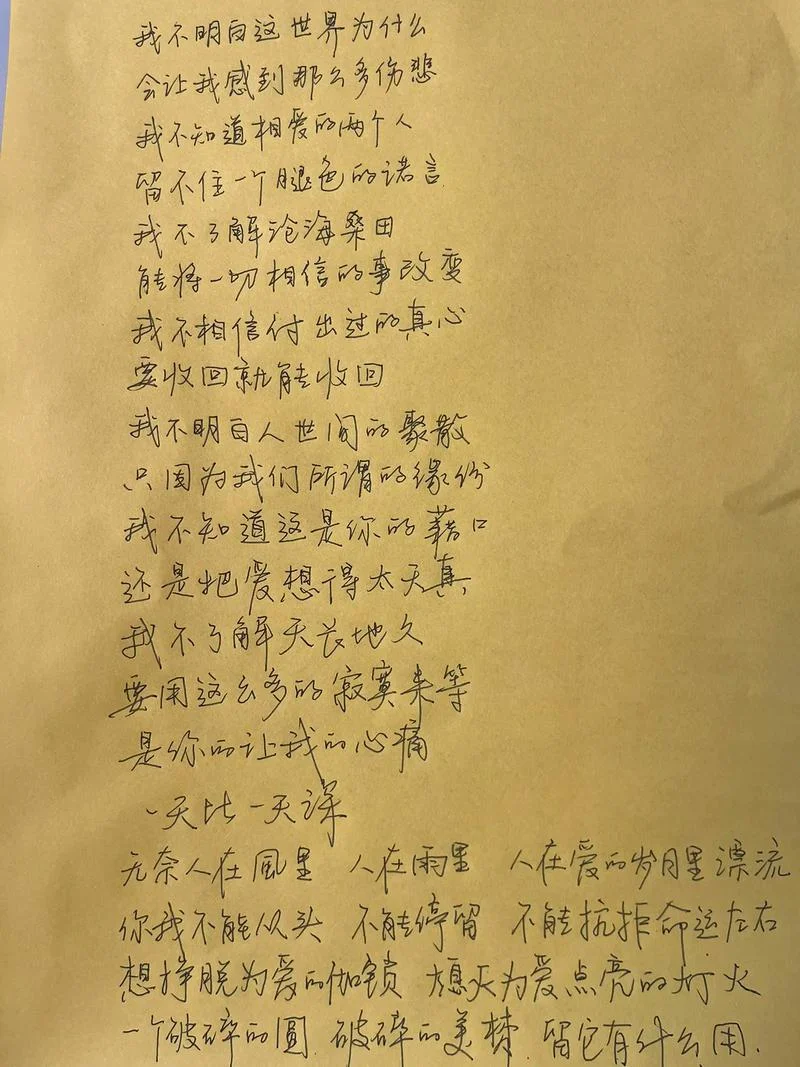 我不明白这世界为什么
会让我感到那么多伤悲
我不知道相爱的两个人
留不住一个腿色的诺言
我不了解沧海桑田
能将一切相信的事改变
我不相信付出过的真心
要收回就能收回
我不明白人世间的聚散
只因为我们所谓的缘份
我不知道这是你的藉口
还是把爱想得太天真
我不了解天长地久
要用这么多的寂寞来等
是你的让我的心痛
一天比一天深
无奈人在風里 人在雨里 人在爱的岁月里漂流
你我不能从头 不能停留 不能抗拒命运左右
想挣脱为爱的伽锁 熄灭为爱点亮的灯火
一个破碎的圆 破碎的美梦 留它有什么用.